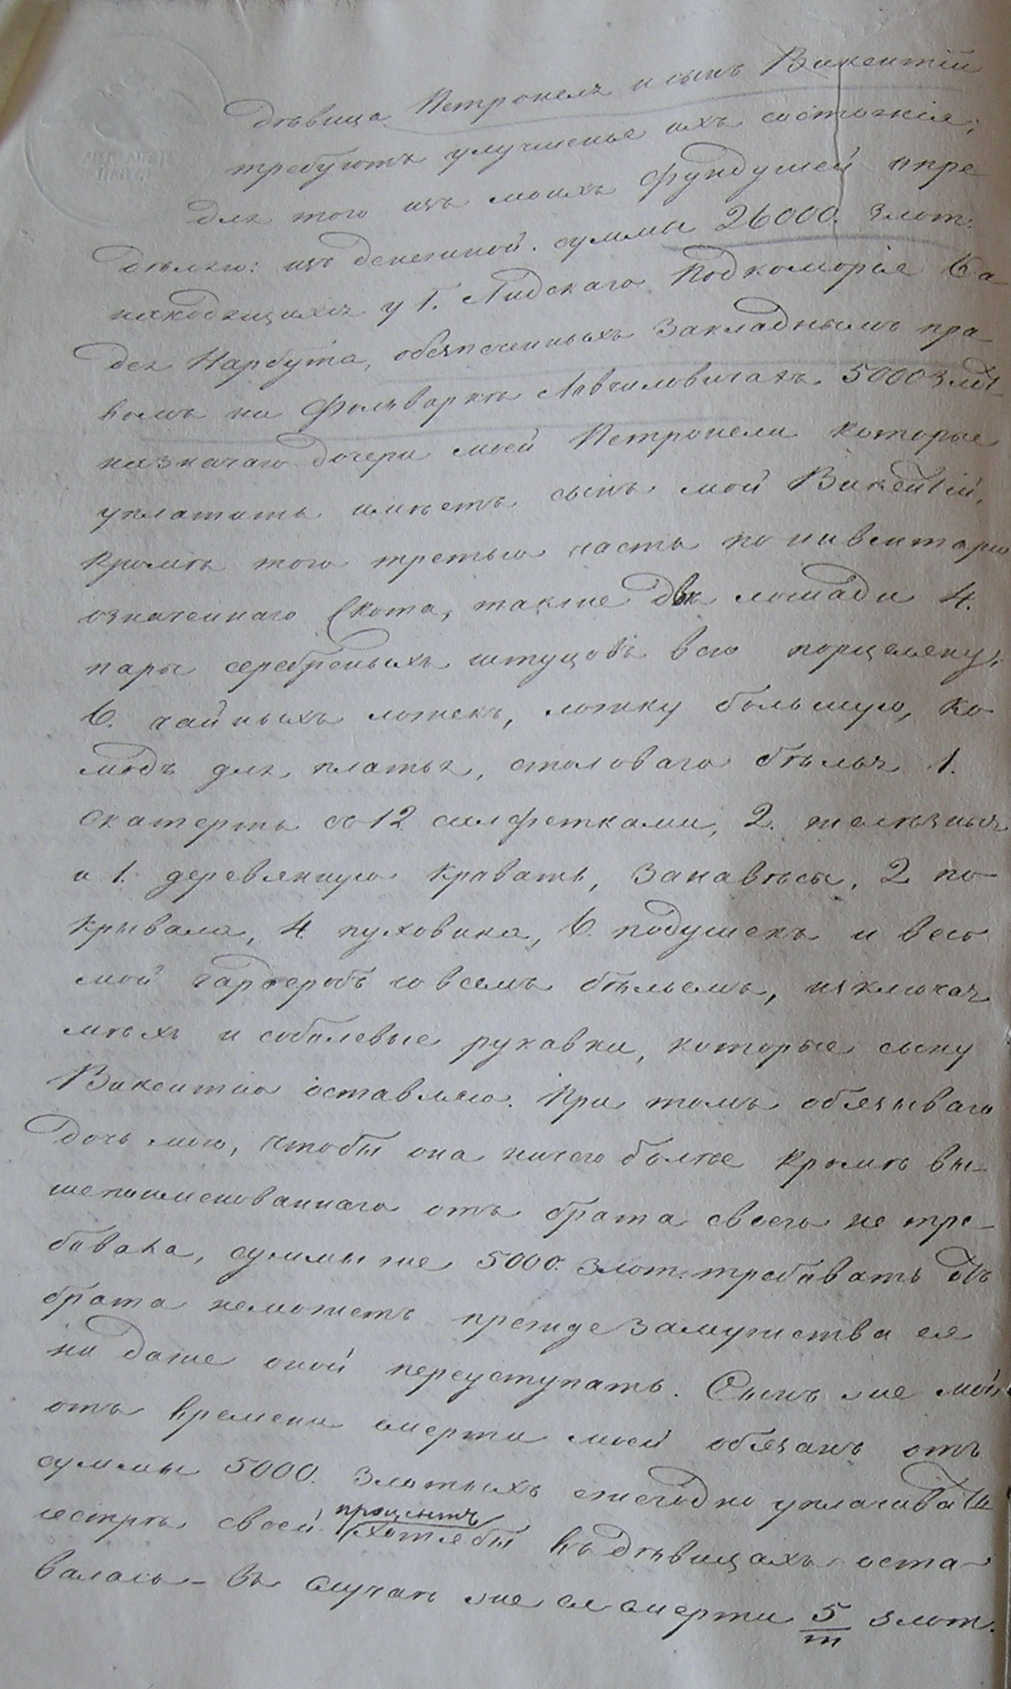 дѣвица Петронеля и сынъ Викентій
требуютъ улучшенье ихъ состоянія,
для того изъ моихъ фундушей опре
дѣляю: изъ денежной суммы 26000. злот.
находящихся у Г. Лидскаго Подкоморія Та
дея Нарбута, обезпеченныхъ закладнымъ пра
вомъ на Фольваркѣ 5000 злот.
назначаю дочери моей Петронели которые
уплатить имѣетъ сынъ мой Викентій,
кромѣ того третью часть по инвентарю
означеннаго скота, также двѣ лошади 4.
пары серебреныхъ штуцовъ всю порцеляну,
6. чайныхъ ложекъ, ложку большую, ко
модъ для платья, столоваго бѣлья 1.
скатерть съ 12 салфетками, 2. желѣзныя
и 1. деревянную кравать, занавѣсы, 2 по
крывала, 4 пуховика, 6. подушекъ и весь
мой гардеробъ со всемъ бѣльемъ, изключая
мѣхъ и соболевые рукавки, которые сыну
Викентію оставляю. При томъ обязываю
дочь мою, чтобы она ничего болѣе кромѣ вы
шепоименованнаго отъ брата своего не тре
бовала, суммы же 5000. злот. требовать отъ
брата неможетъ прежде замужства ея
ни даже оной переуступать. Сынъ же мой
отъ времени смерти моей обязанъ отъ
суммы 5000. злотыхъ ежегодно уплачивать
сестрѣ своей процентъ хотябы въ дѣвицахъ оста
валась – въ случаѣ же ея смерти 5/m злот.